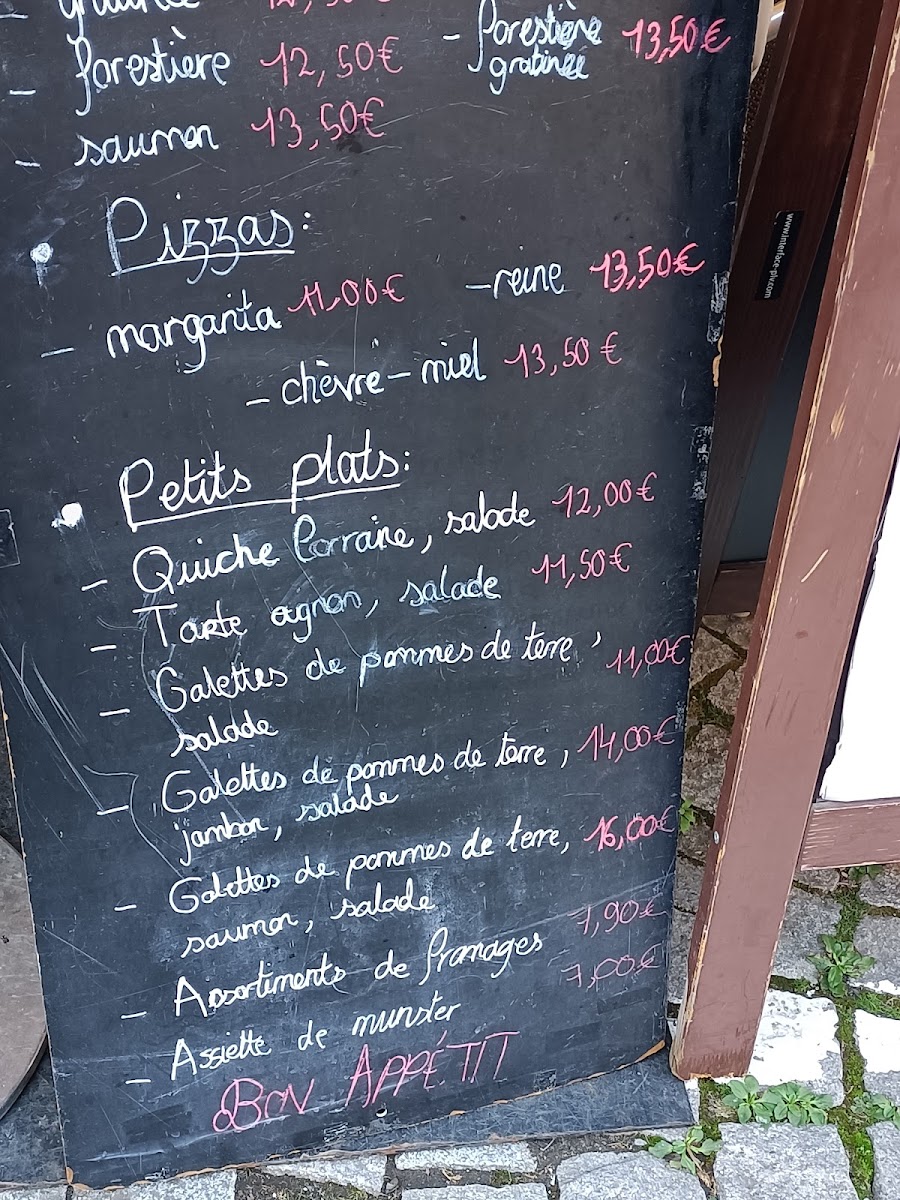 gratinée 12,50€
- forestière 12,50€
- forestière gratinée 13,50€
- saumon 13,50€
• Pizzas:
- margarita 11,00€
- reine 13,50€
- chèvre - miel 13,50€
• Petits plats:
- Quiche Lorraine, salade 12,00€
- Tarte ognon, salade 11,50€
- Galettes de pommes de terre, 11,00€
salade
- Galettes de pommes de terre, 14,00€
jambon, salade
- Galettes de pommes de terre, 16,00€
saumon, salade
- Assortiments de fromages 7,90€
- Assiette de munster 7,00€
BON APPÉTIT
www.interface-plv.com